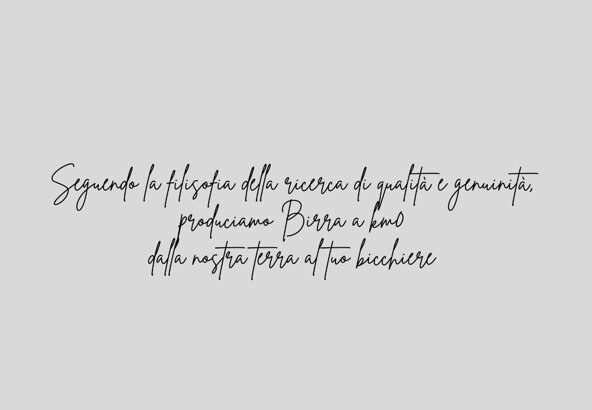 Seguendo la filisofia della ricerca di qualità e genuinità,
produciamo Birra a km0
dalla nostra terra al tuo bicchiere